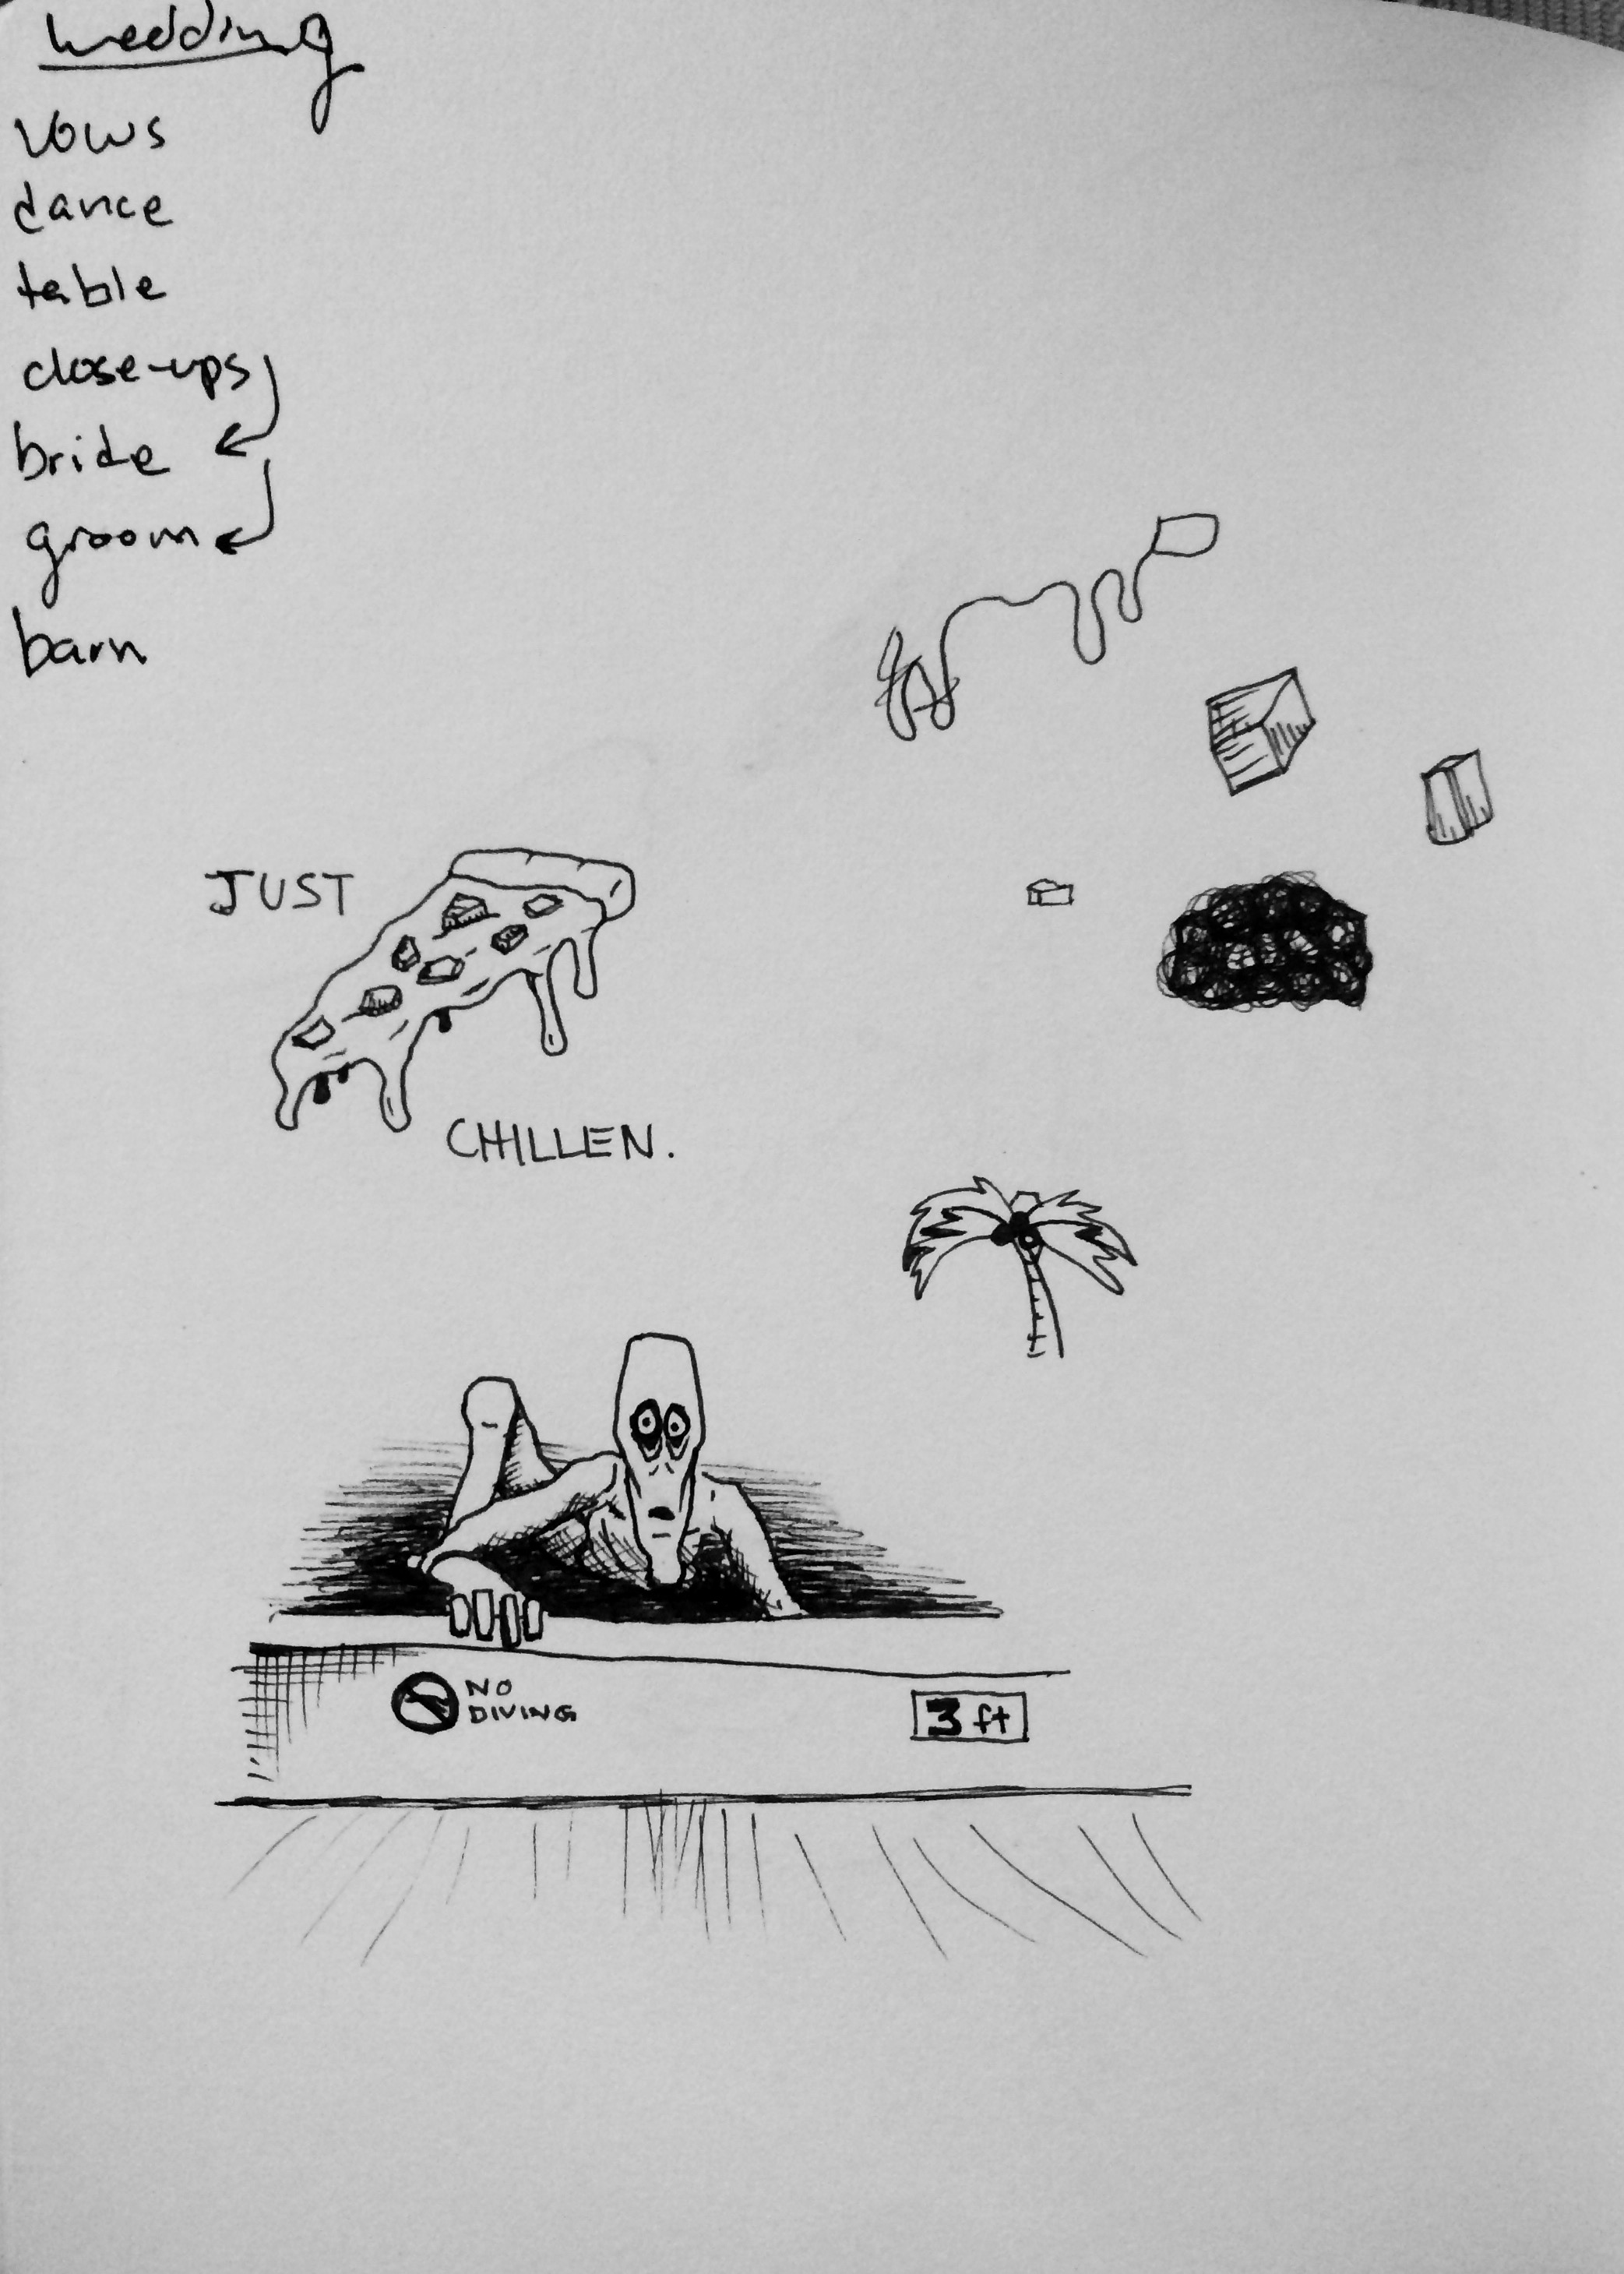 wedding
vows
dance
table
close-ups
bride
groom
barn
JUST
CHILLEN.
NO
DIVING
3 ft